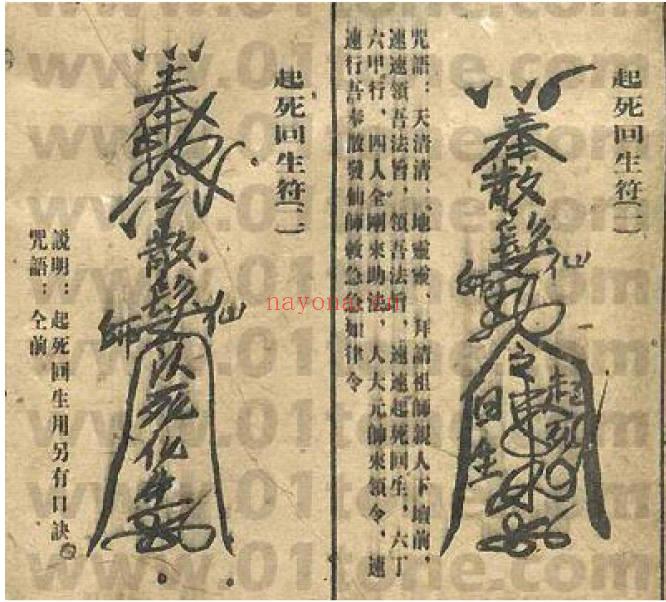 起死回生符(一)
奉散髮
仙師
之
起死
回生
咒語：天清清、地靈靈、拜請祖師親人下壇前，
速速領吾法旨，領吾法旨，速速起死回生，六丁
六甲行，四人全剛來助法，人大元帥來領令，速
速行吾奉散發仙師救急急如律令
起死回生符(二)
奉
之
散髮
仙師
死化生
說明：起死回生用另有口訣
咒語：仝前
www.01tone.com
nayona.cn